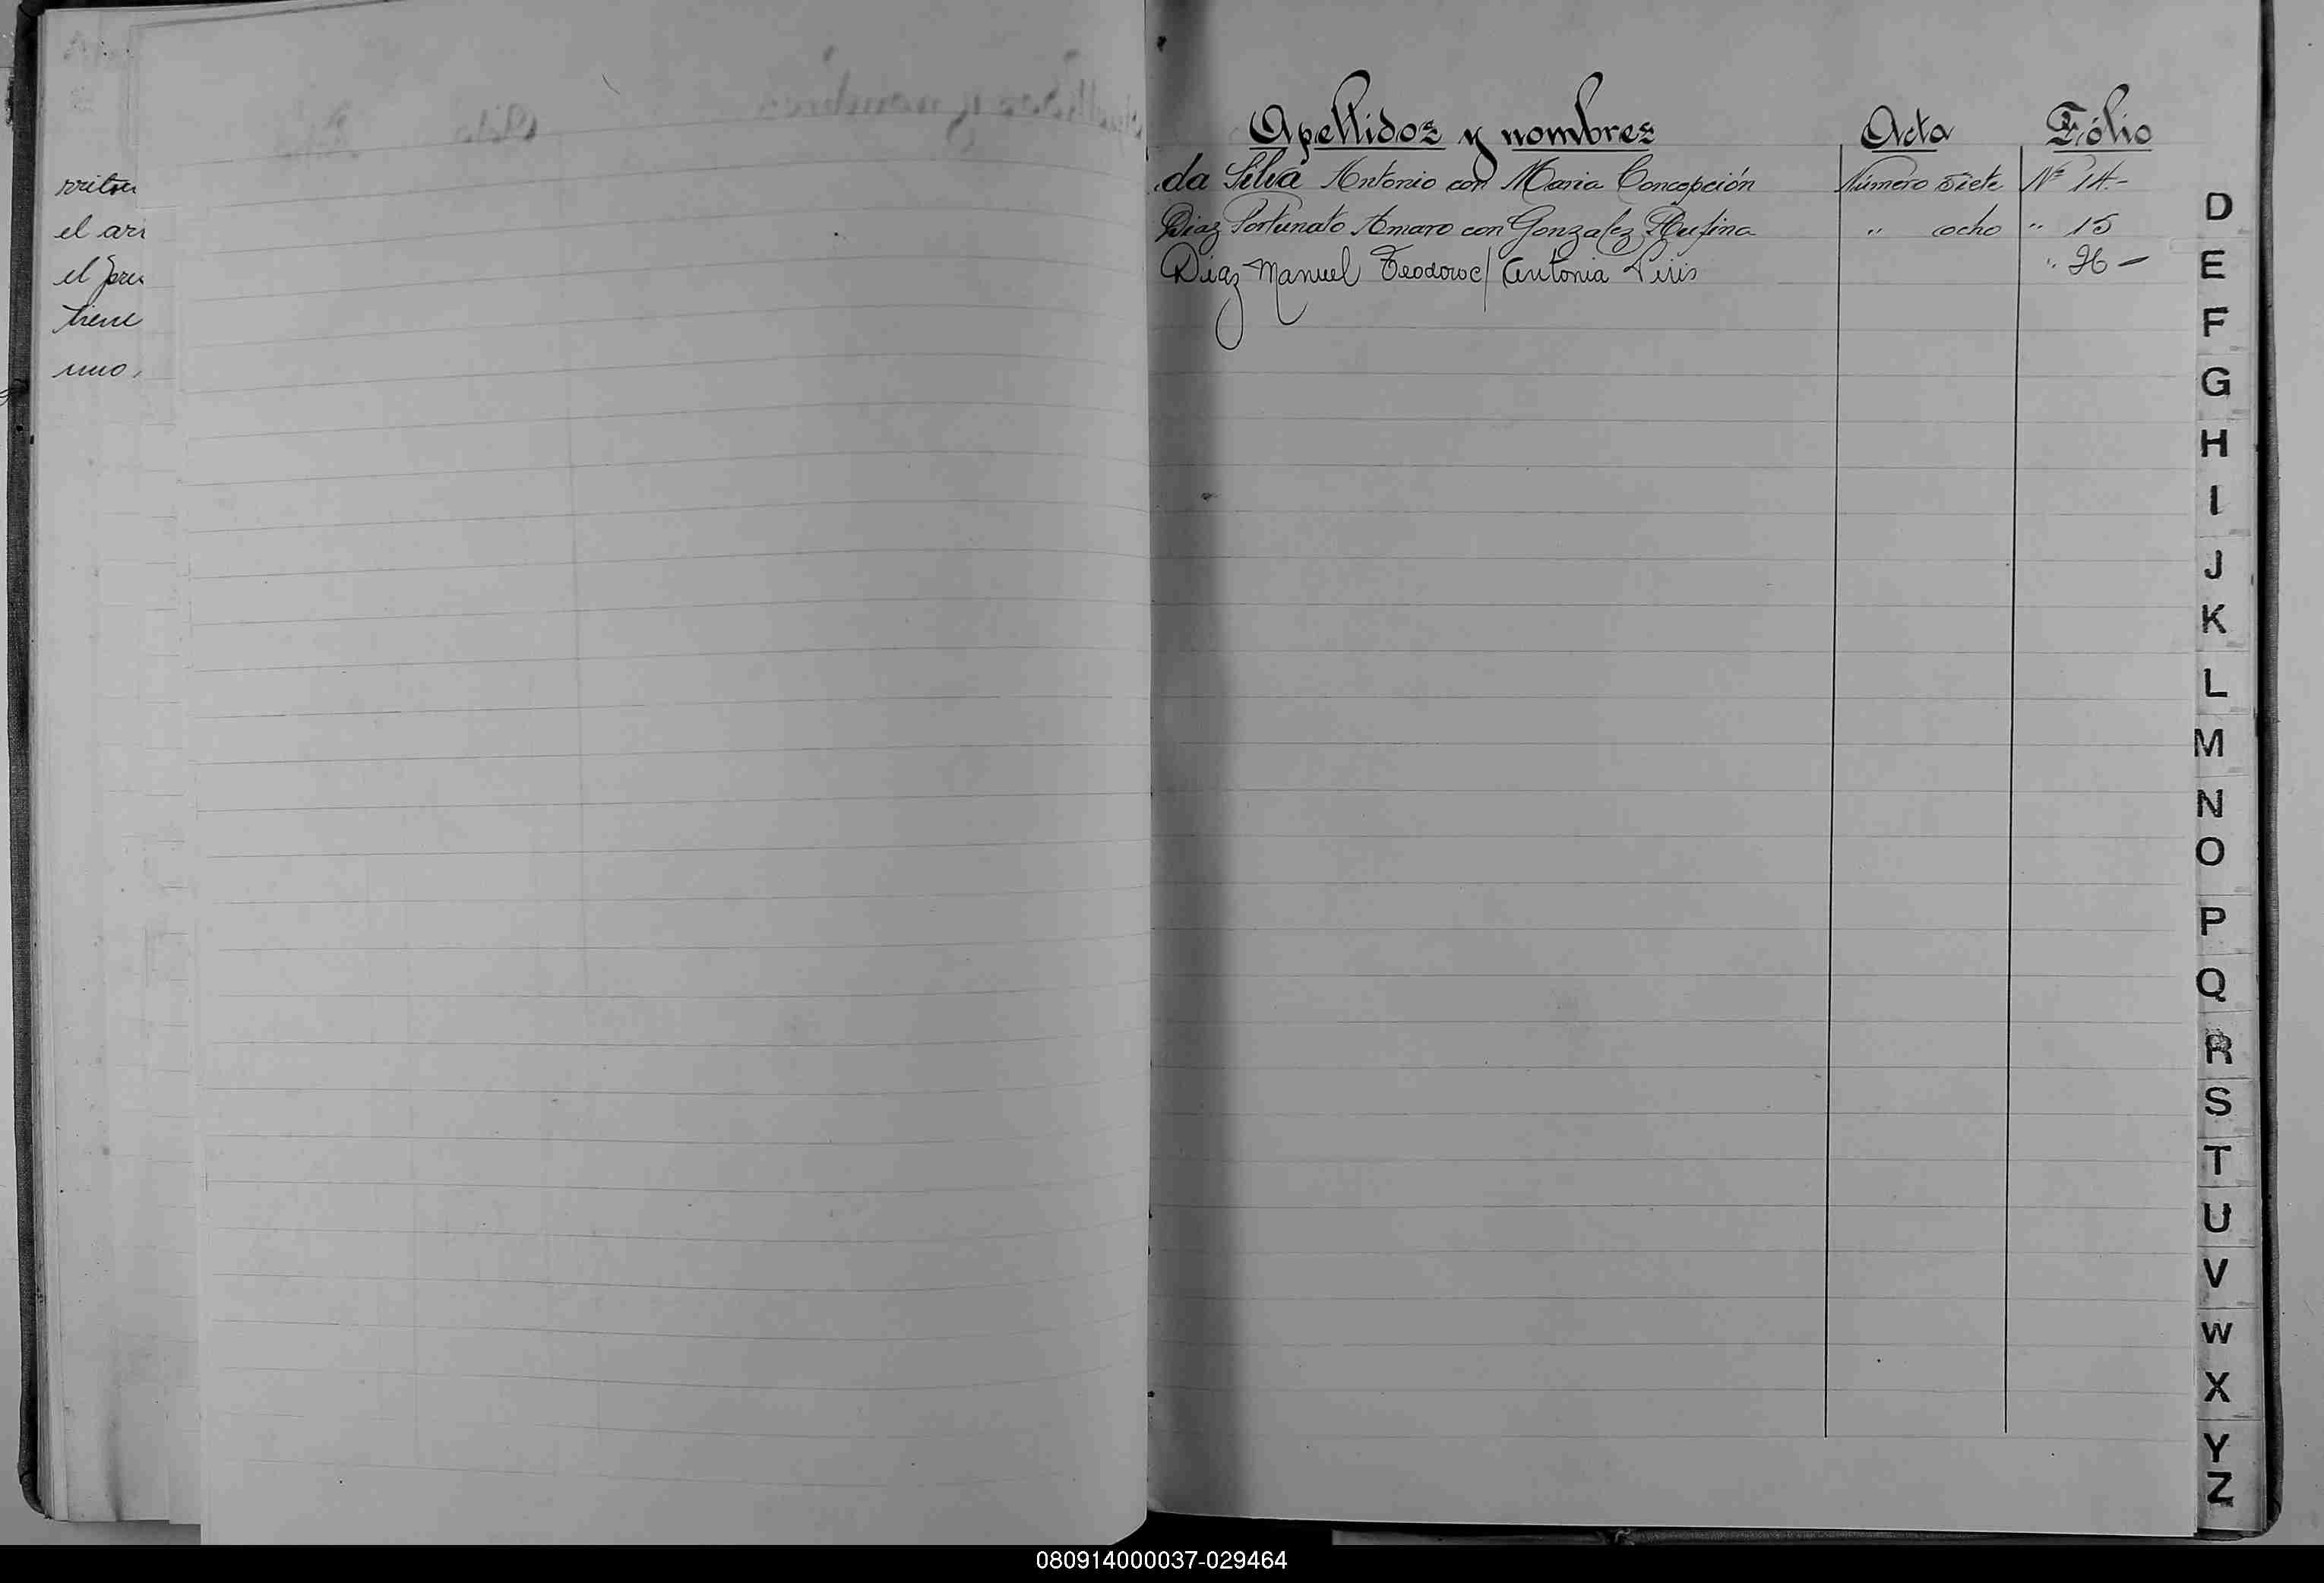 el
tiene
uno,
Apellidos y nombres Acta Fólio
da Silva Antonio con Maria Concepción Número siete Nº 14.-
Diaz Fortunato Amaro con Gonzalez Rufina " ocho " 15
Diaz Manuel Teodoro c/ Antonia Piris " 26 -
D
E
F
G
H
I
J
K
L
M
N
O
P
Q
R
S
T
U
V
W
X
Y
Z
080914000037-029464